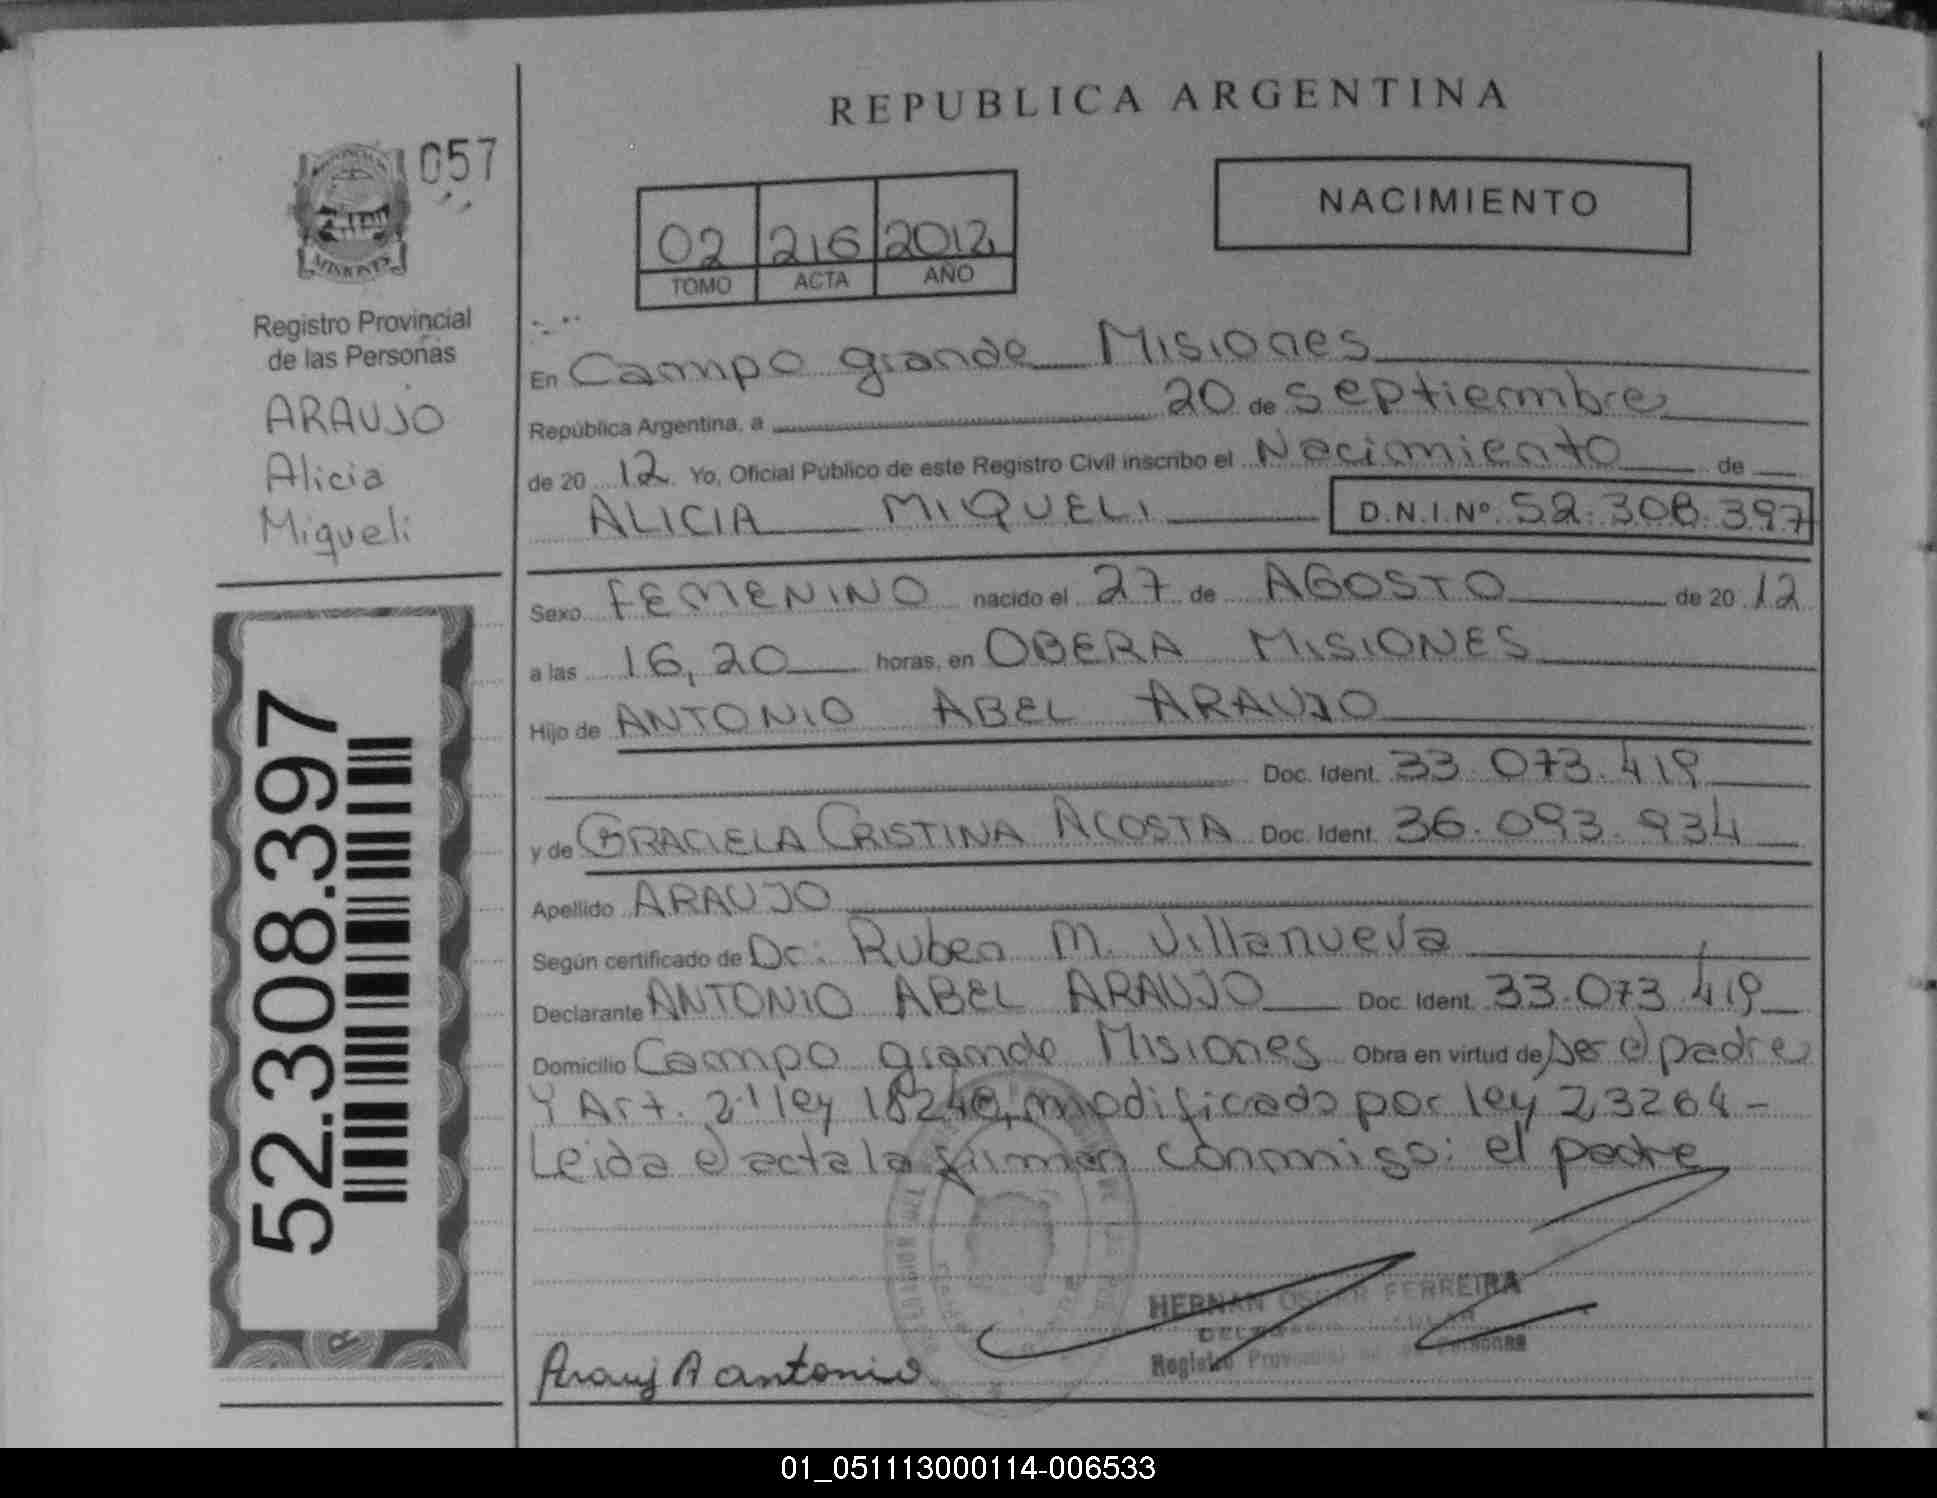 REPUBLICA ARGENTINA
057
NACIMIENTO
02 216 2012
TOMO ACTA AÑO
MISIONES
Registro Provincial
de las Personas
ARAUJO
Alicia
Miqueli
52.308.397
En Campo grande Misiones
República Argentina, a 20 de septiembre
de 2012 Yo, Oficial Público de este Registro Civil inscribo el Nacimiento de
ALICIA MIQUELI D.N.I.Nº 52.308.397
Sexo FEMENINO nacido el 27 de AGOSTO de 2012
a las 16,20 horas, en OBERA MISIONES
Hijo de ANTONIO ABEL ARAUJO
Doc. Ident. 33.073.419
y de GRACIELA CRISTINA ACOSTA Doc. Ident. 36.093.934
Apellido ARAUJO
Según certificado de Dr: Ruben M. Villanueva
Declarante ANTONIO ABEL ARAUJO Doc. Ident. 33.073.419
Domicilio Campo grande Misiones Obra en virtud de ser el padre
Y Art. 2º ley 18248, modificado por ley 23264-
Leida el acta la firman conmigo: el padre
HERNAN OSCAR FERREIRA
Registro Provincial de las Personas
Arauj A antonio
01_051113000114-006533